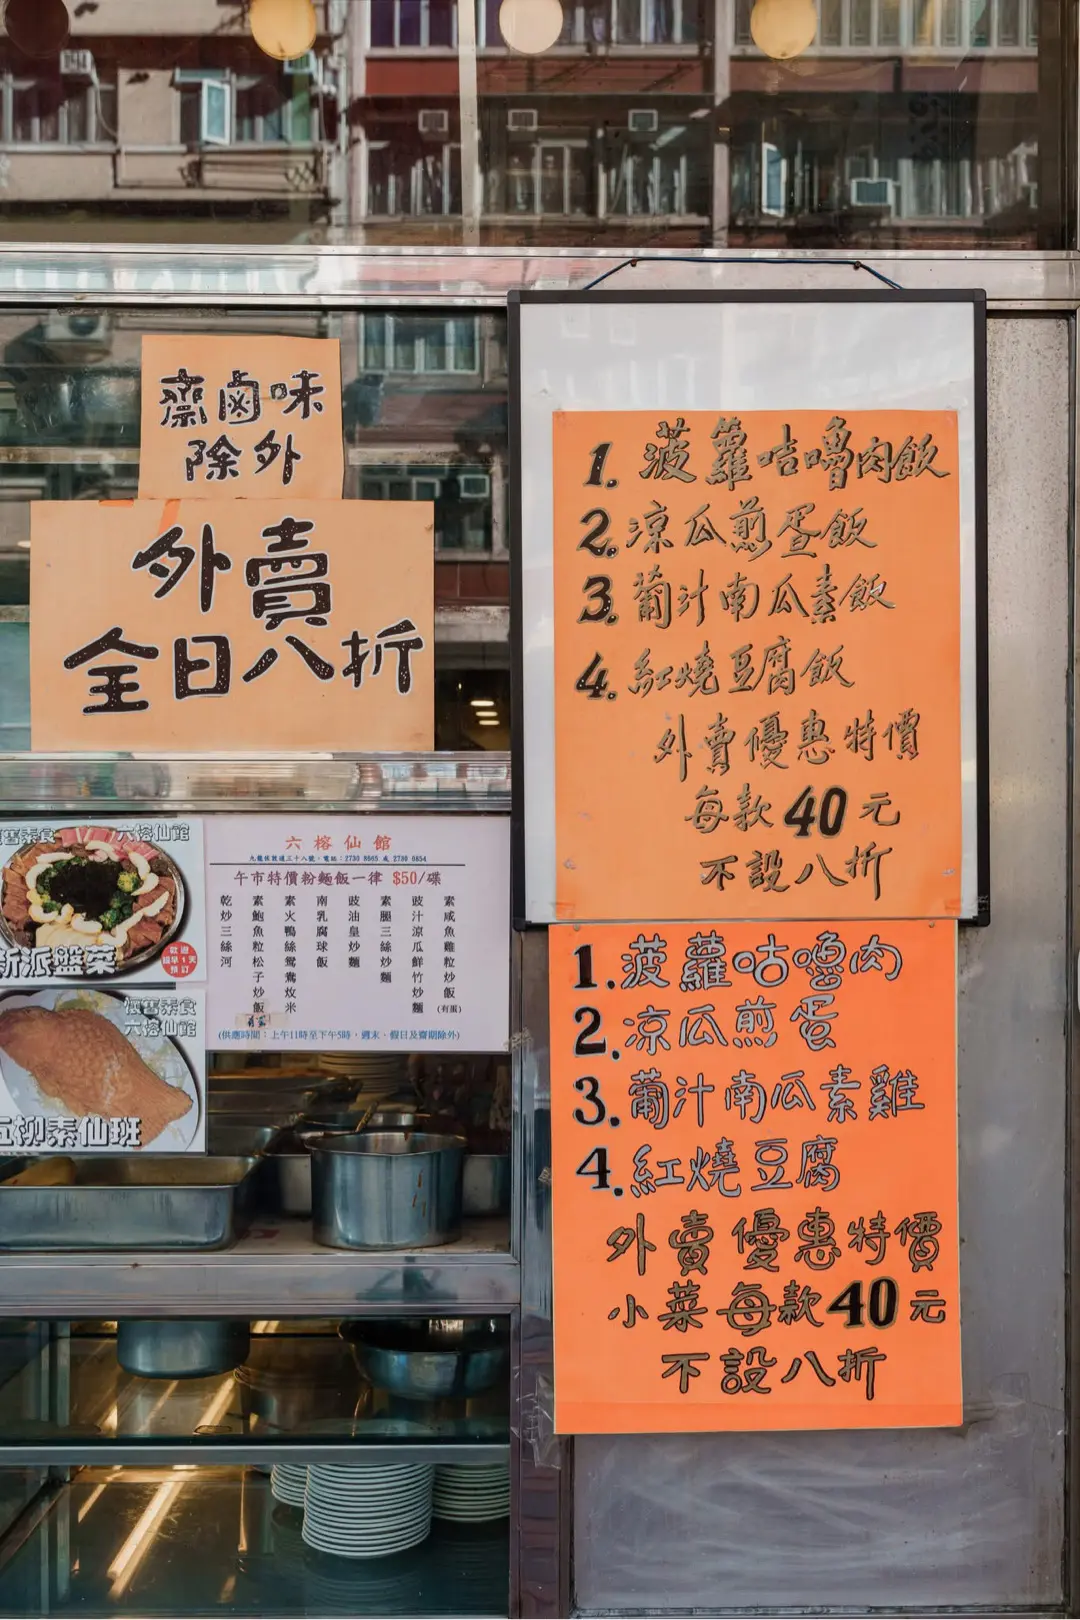 齋鹵味
除外
外賣
全日八折
1. 菠籮咕嚕肉飯
2. 涼瓜煎蛋飯
3. 葡汁南瓜素飯
4. 紅燒豆腐飯
外賣優惠特價
每款40元
不設八折
1. 菠蘿咕嚕肉
2. 凉瓜煎蛋
3. 葡汁南瓜素雞
4. 紅燒豆腐
外賣優惠特價
小菜每款40元
不設八折
舊素食 六榕仙館
新派盤菜
歡迎
提早1天
預訂
懷舊素食
六榕仙館
五柳素仙班
六榕仙館
午市特價粉麵飯一律 $50/碟
素咸魚雞粒炒飯
(有蛋)
豉汁涼瓜鮮竹炒麵
素腿三絲炒麵
豉油皇炒麵
南乳腐球飯
素火鴨絲鴛鴦炆米
素鮑魚粒松子炒飯
乾炒三絲河
(供應時間：上午11時至下午5時，週末、假日及齋期除外)